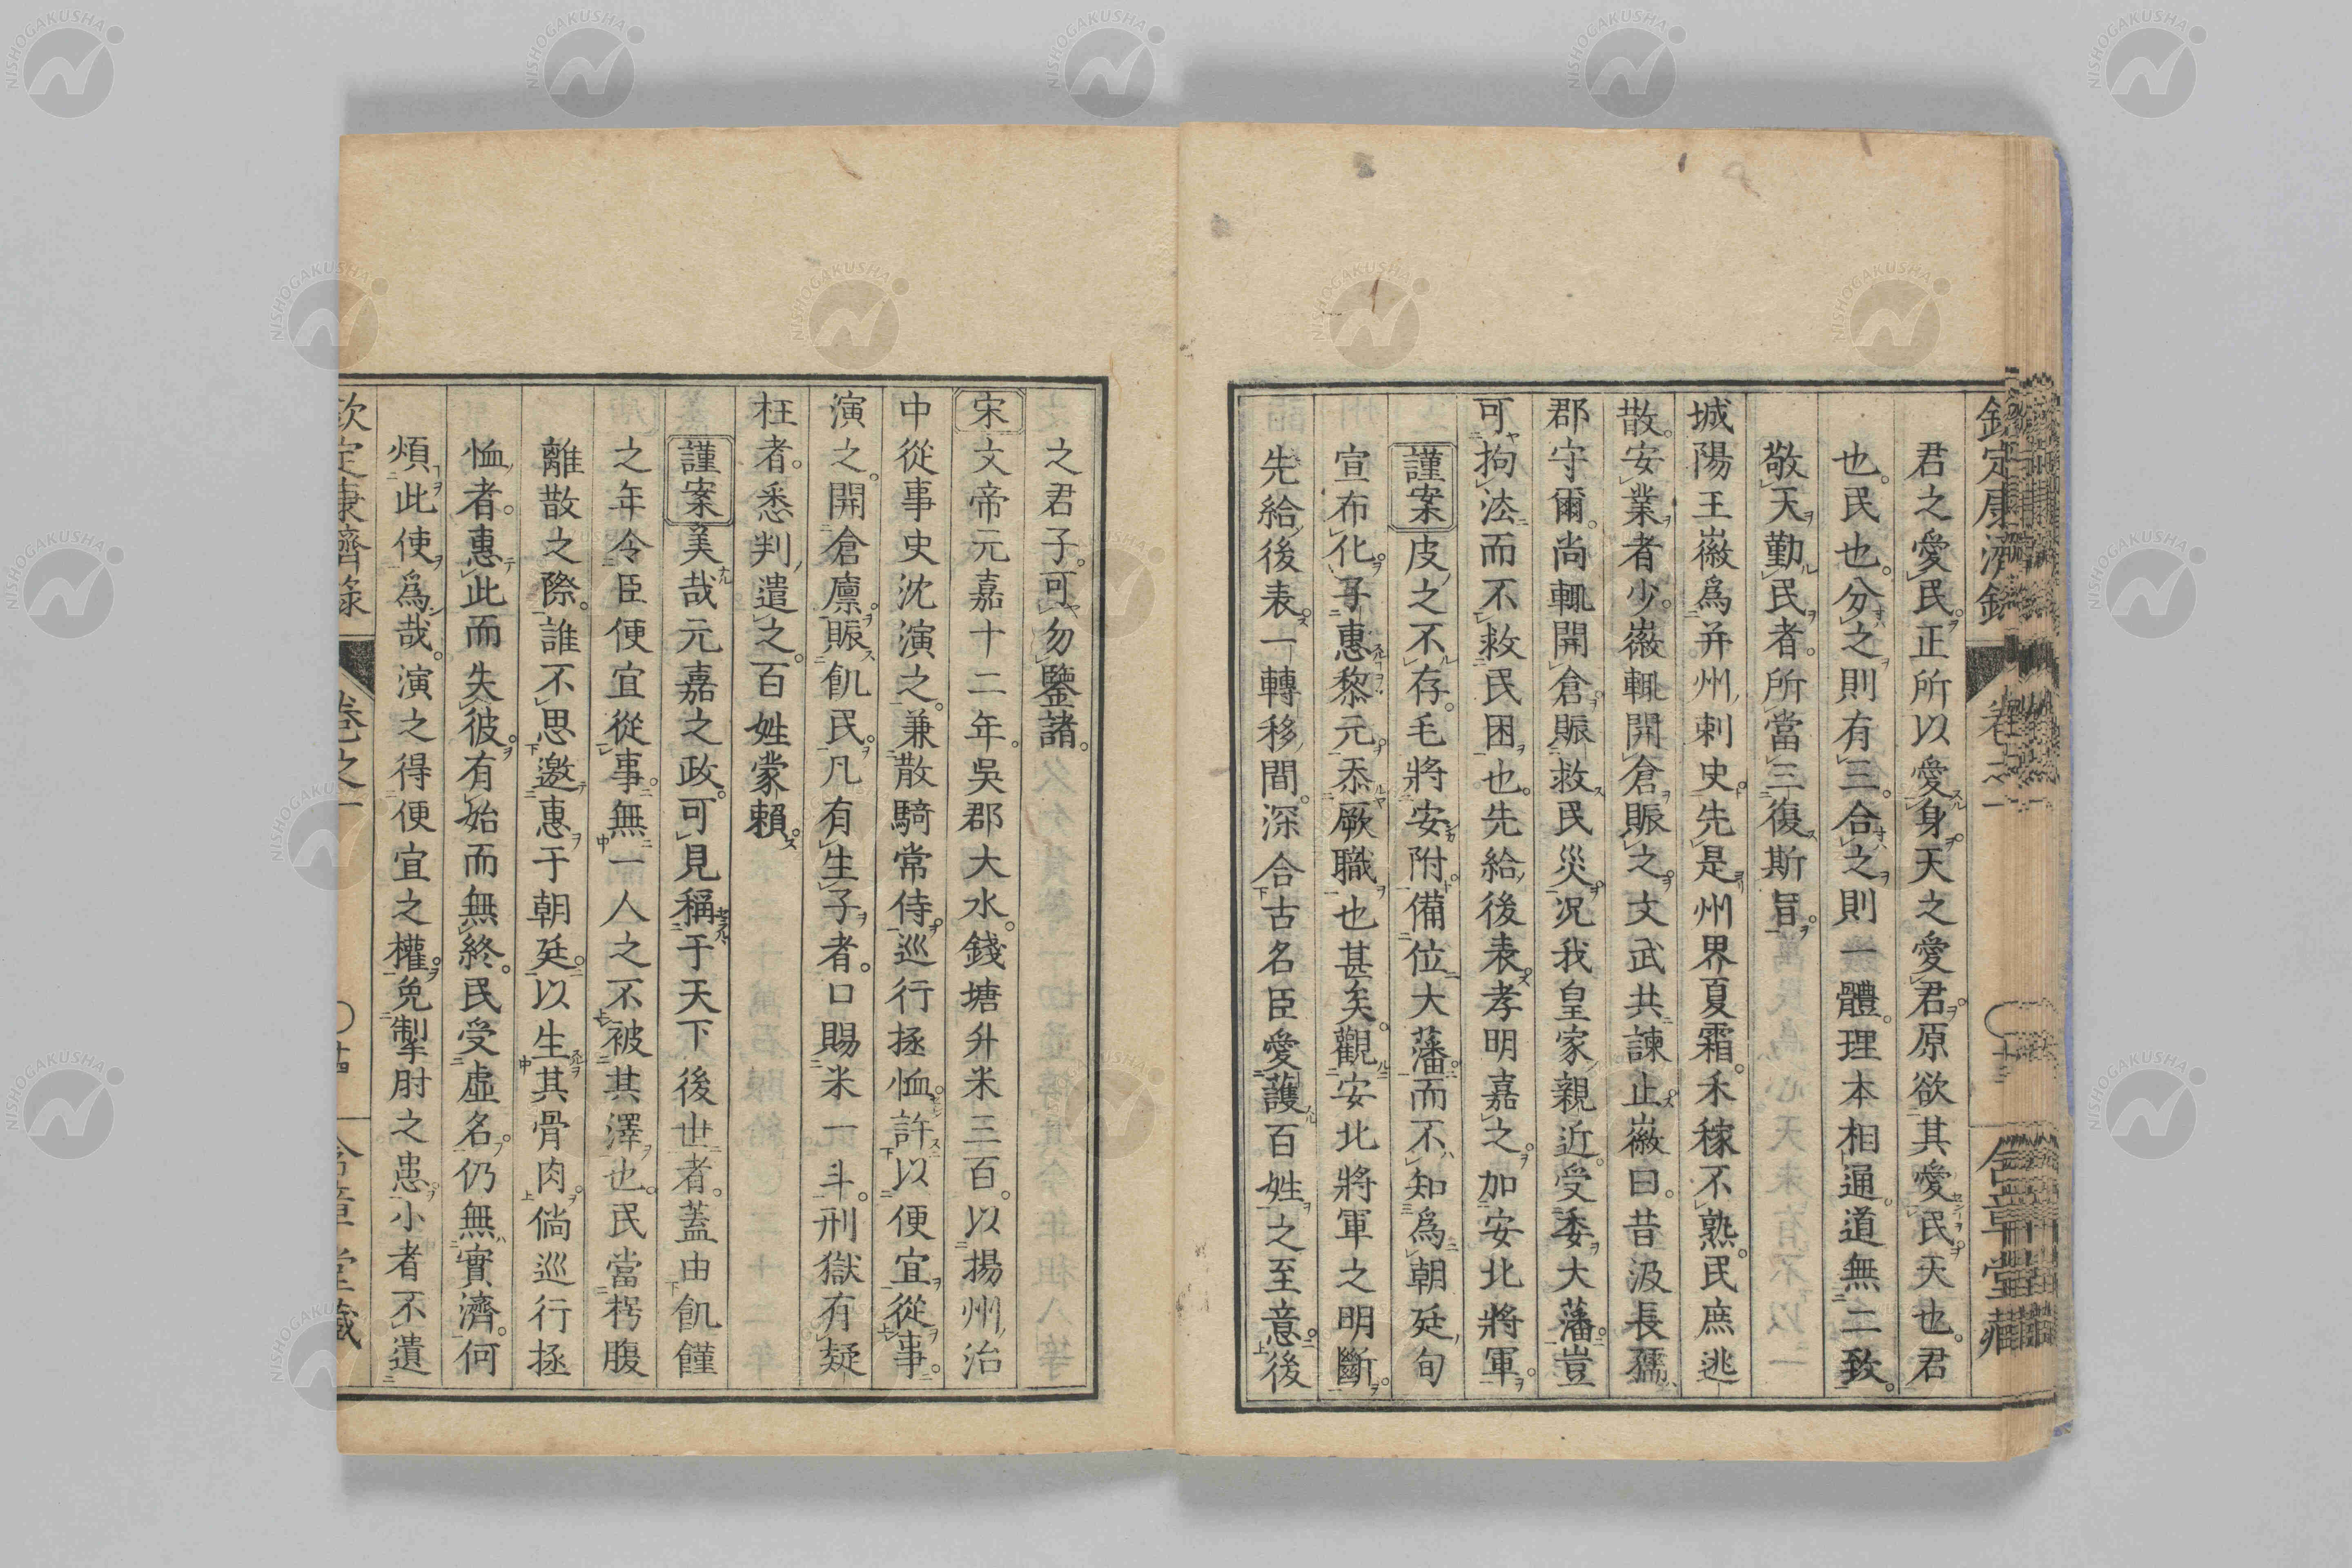 君之愛民。正所以愛身。天之愛君。原欲其愛民。天也。君
也。民也。分之則有三。合之則一體。理本相通。道無二致。
敬天勤民者。所當三復斯旨。
城陽王徽為并州刺史。先是州界夏霜。禾稼不熟。民庶逃
散。安業者少。徽輒開倉賑之。文武共諫止。徽曰。昔汲長孺
郡守爾。尚輒開倉賑救民災。況我皇家親近。受委大藩。豈
可拘法而不救民困也。先給後表。孝明嘉之。加安北將軍。
謹案皮之不存。毛將安附。備位大藩。而不知為朝廷旬
宣布化。子惠黎元。忝厥職也甚矣。觀安北將軍之明斷。
先給後表。一轉移間。深合古名臣愛護百姓之至意。後
之君子。可勿鑒諸。
宋文帝元嘉十二年。吳郡大水。錢塘升米三百。以揚州治
中從事史沈演之。兼散騎常侍。巡行拯恤。許以便宜從事。
演之。開倉廩。賑飢民。凡有生子者。口賜米一斗。刑獄有疑
枉者。悉判遣之。百姓蒙賴。
謹案美哉元嘉之政。可見稱于天下後世者。蓋由飢饉
之年。令臣便宜從事。無一人之不被其澤也。民當枵腹
離散之際。誰不思邀惠于朝廷。以生其骨肉。倘巡行拯
恤者。惠此而失彼。有始而無終。民受虛名。仍無實濟。何
煩此使為哉。演之得便宜之權。免掣肘之患。小者不遺
欽定康濟錄 卷之一 〇十四 合章堂藏